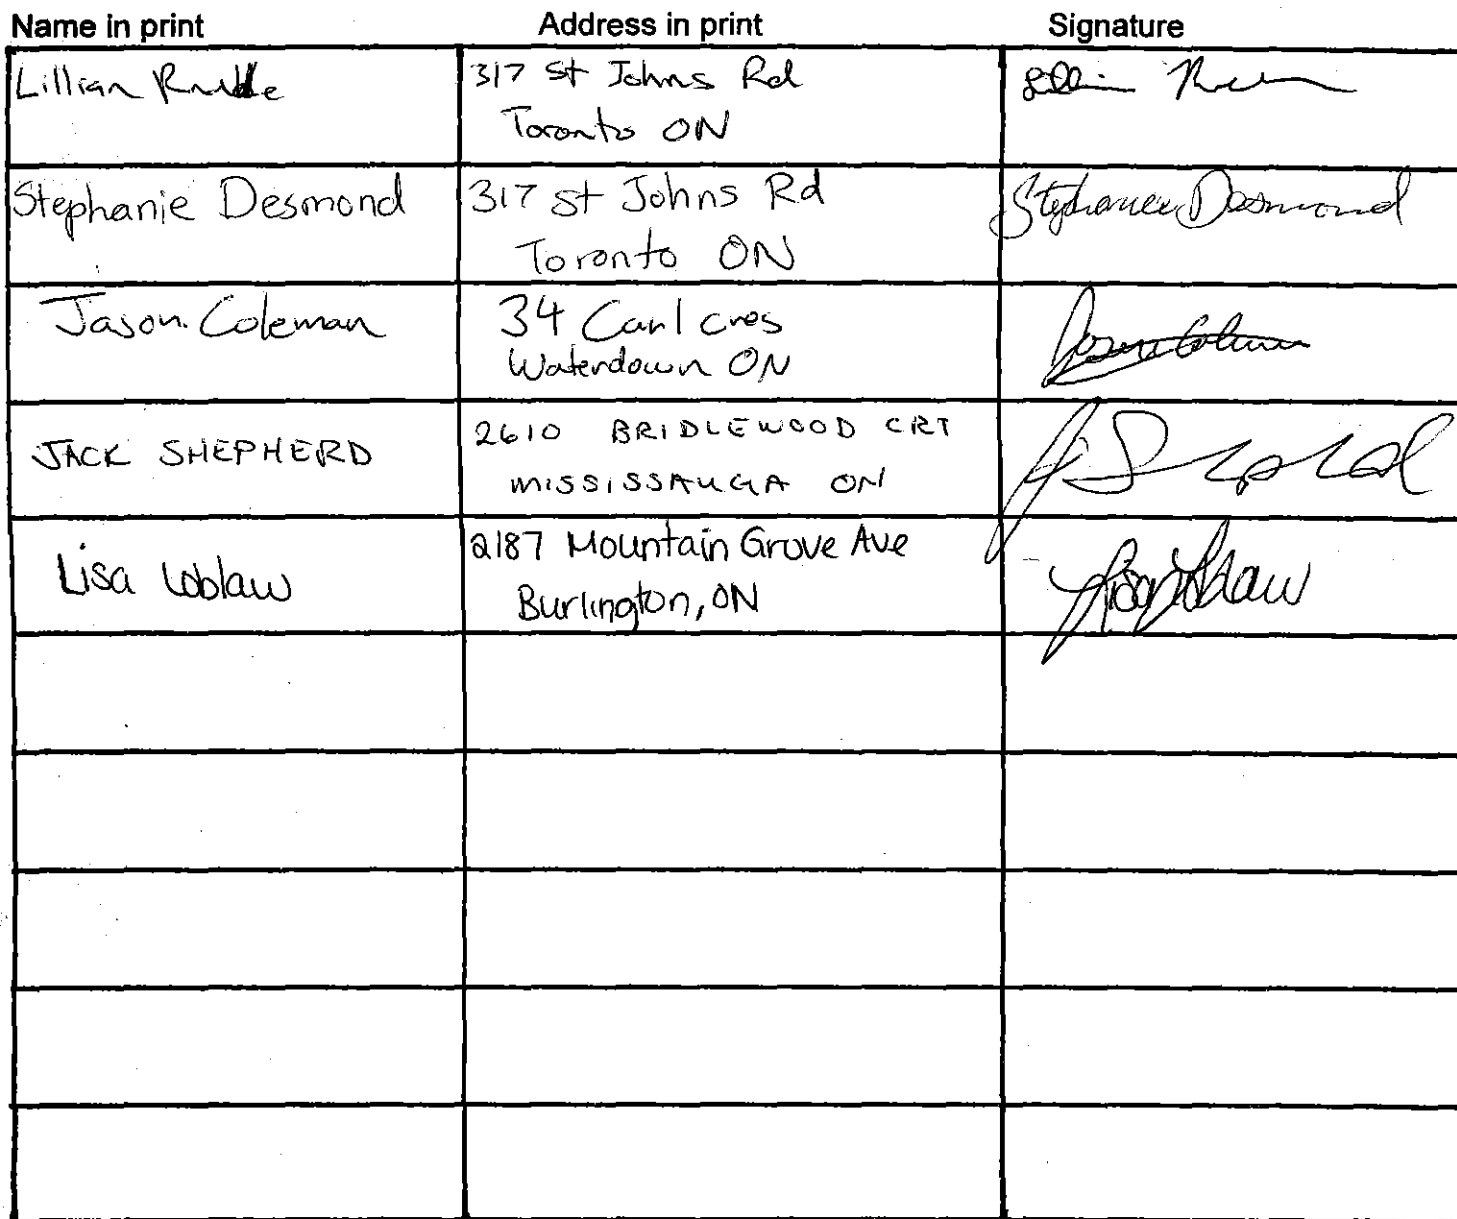 Name in print Address in print Signature
Lillian 317 St Johns Rd
Toronto ON
Stephanie Desmond 317 St Johns Rd Stephanie Desmond
Toronto ON
Jason Coleman 34 Carl cres
Waterdown ON
JACK SHEPHERD 2610 BRIDLEWOOD CRT
MISSISSAUGA ON
Lisa Loblaw 2187 Mountain Grove Ave
Burlington, ON